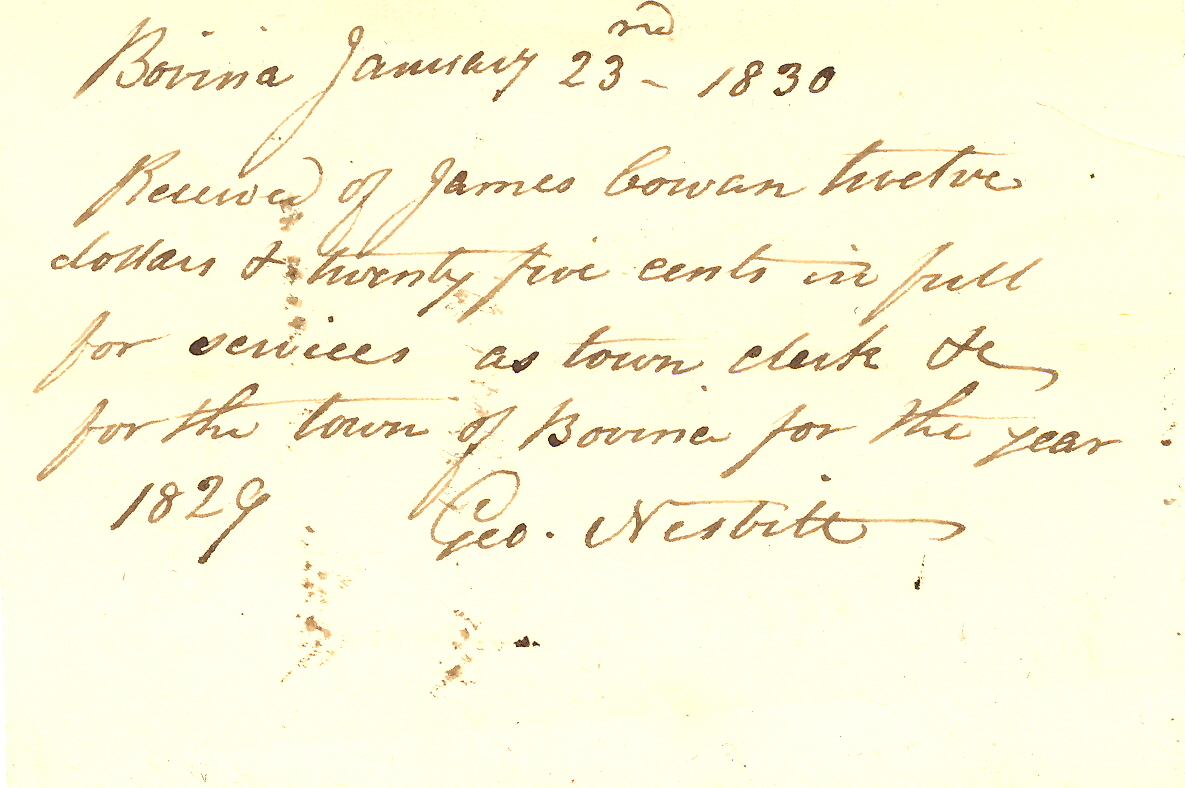 Bovina January 23rd - 1830
Received of James Cowan twelve
dollars & twenty five cents in full
for services as town clerk &c
for the town of Bovina for the year
1829 Geo. Nesbitt